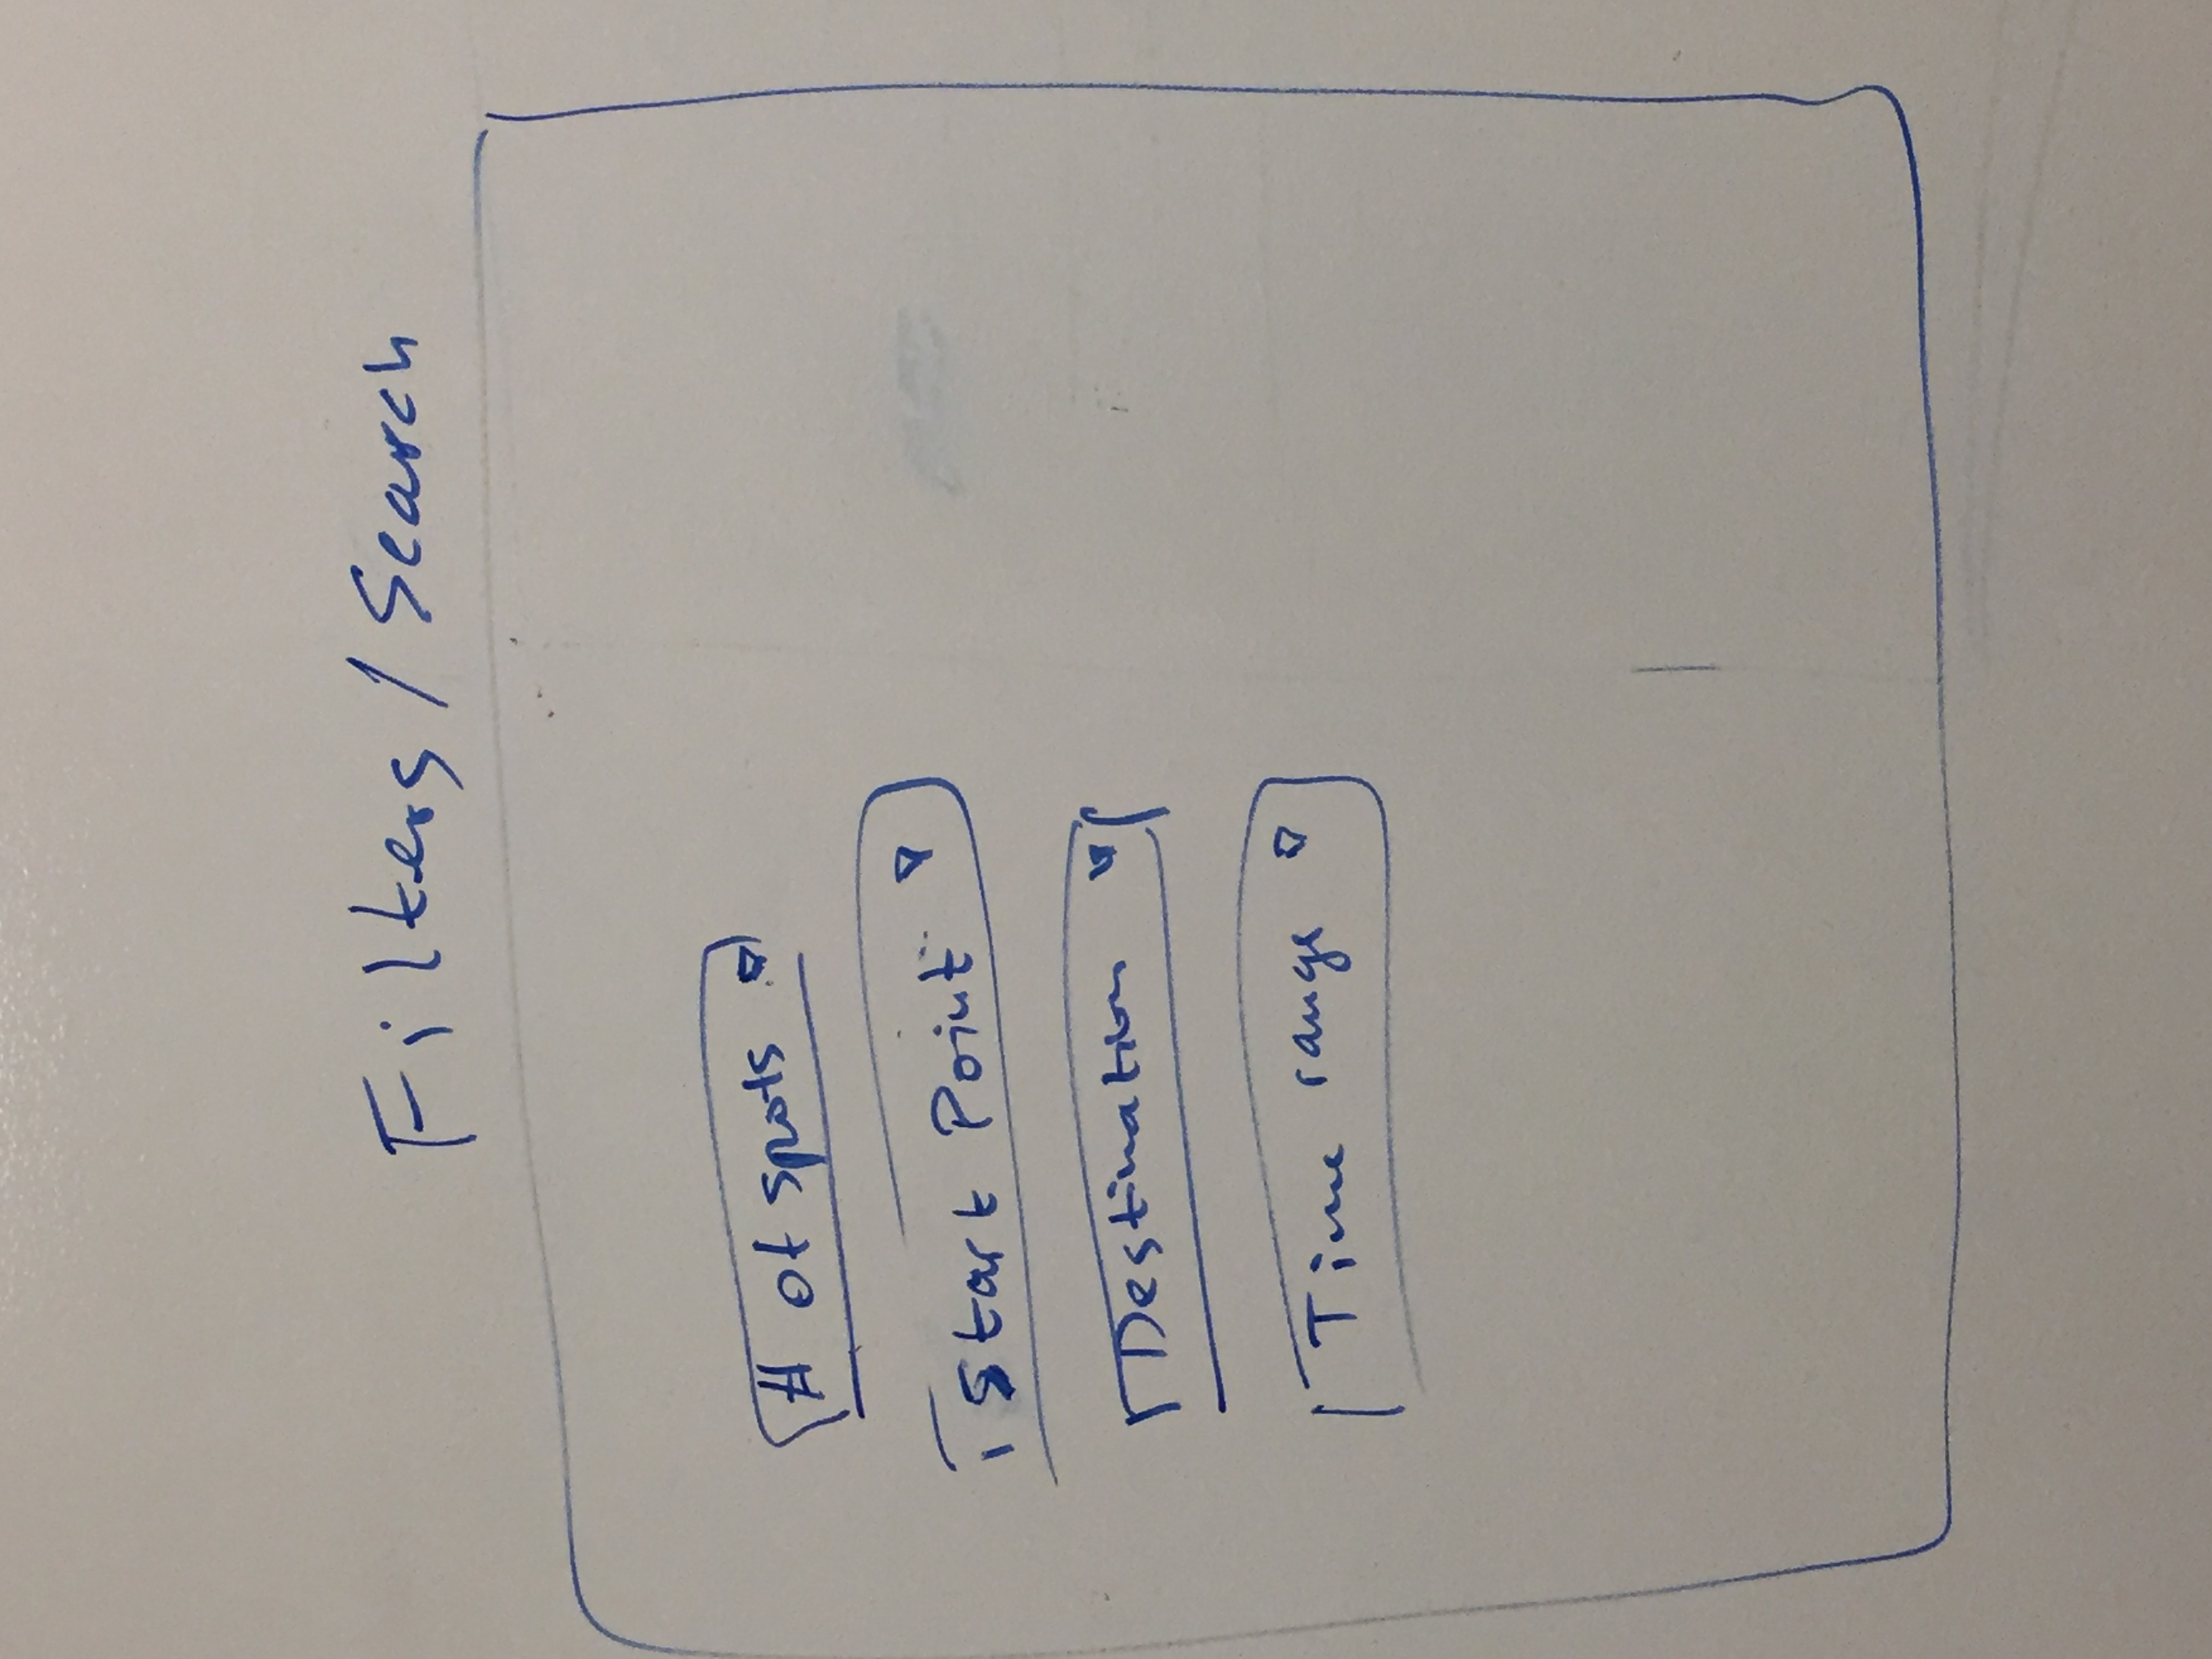 Filters / Search
# of spots
Start Point
Destination
Time range